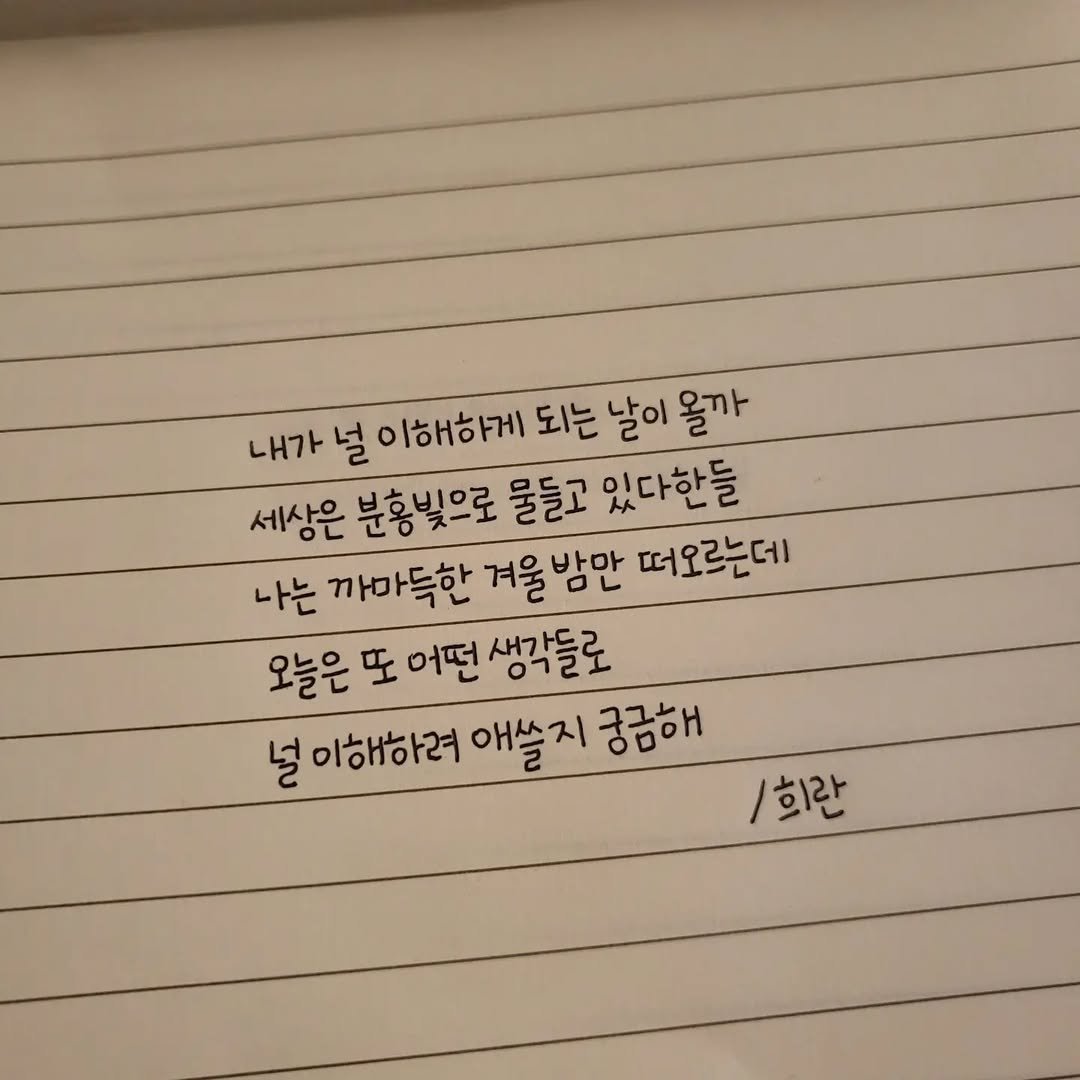 내가 널 이해하게 되는 날이 올까
세상은 분홍빛으로 물들고 있다한들
나는 까마득한 겨울밤만 떠오르는데
오늘은 또 어떤 생각들로
널 이해하려 애쓸지 궁금해
/희란